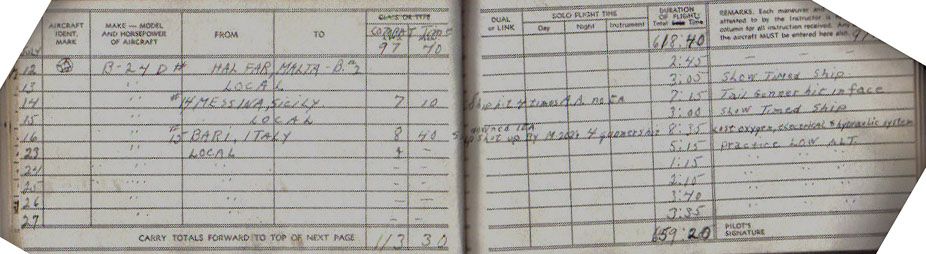 AIRCRAFT IDENT. MARK MAKE — MODEL AND HORSEPOWER OF AIRCRAFT FROM TO CLASS OR TYPE DUAL or LINK SOLO FLIGHT TIME Day Night Instrument DURATION OF FLIGHT: Total Time REMARKS. Each maneuver
attested to by the Instructor
column for all instruction received. Any
the aircraft MUST be entered here also.
JULY COMBAT 97 40 618:40
12 B-24 D HAL FAR, MALTA - B. #2 2:45 — —
13 " " LOCAL 3:00 Slow Timed Ship
14 " " #14 MESSINA, SICILY 7 10 Ship hit 4 times A.A. no EA 7:15 Tail Gunner hit in face
15 " " LOCAL 3:00 Slow Timed Ship
16 " " #15 BARI, ITALY 8 40 downed 1EA Ship shot up by 4 gunners hit 8:35 Lost oxygen, electrical & hydraulic system
23 " " LOCAL — 5:15 Practice LOW ALT.
24 " " — 1:15 " " "
25 " " — 2:10 " " "
26 " " — — 3:40 " " "
27 — — 3:35 " " "
CARRY TOTALS FORWARD TO TOP OF NEXT PAGE 113 30 659:20 PILOT'S SIGNATURE